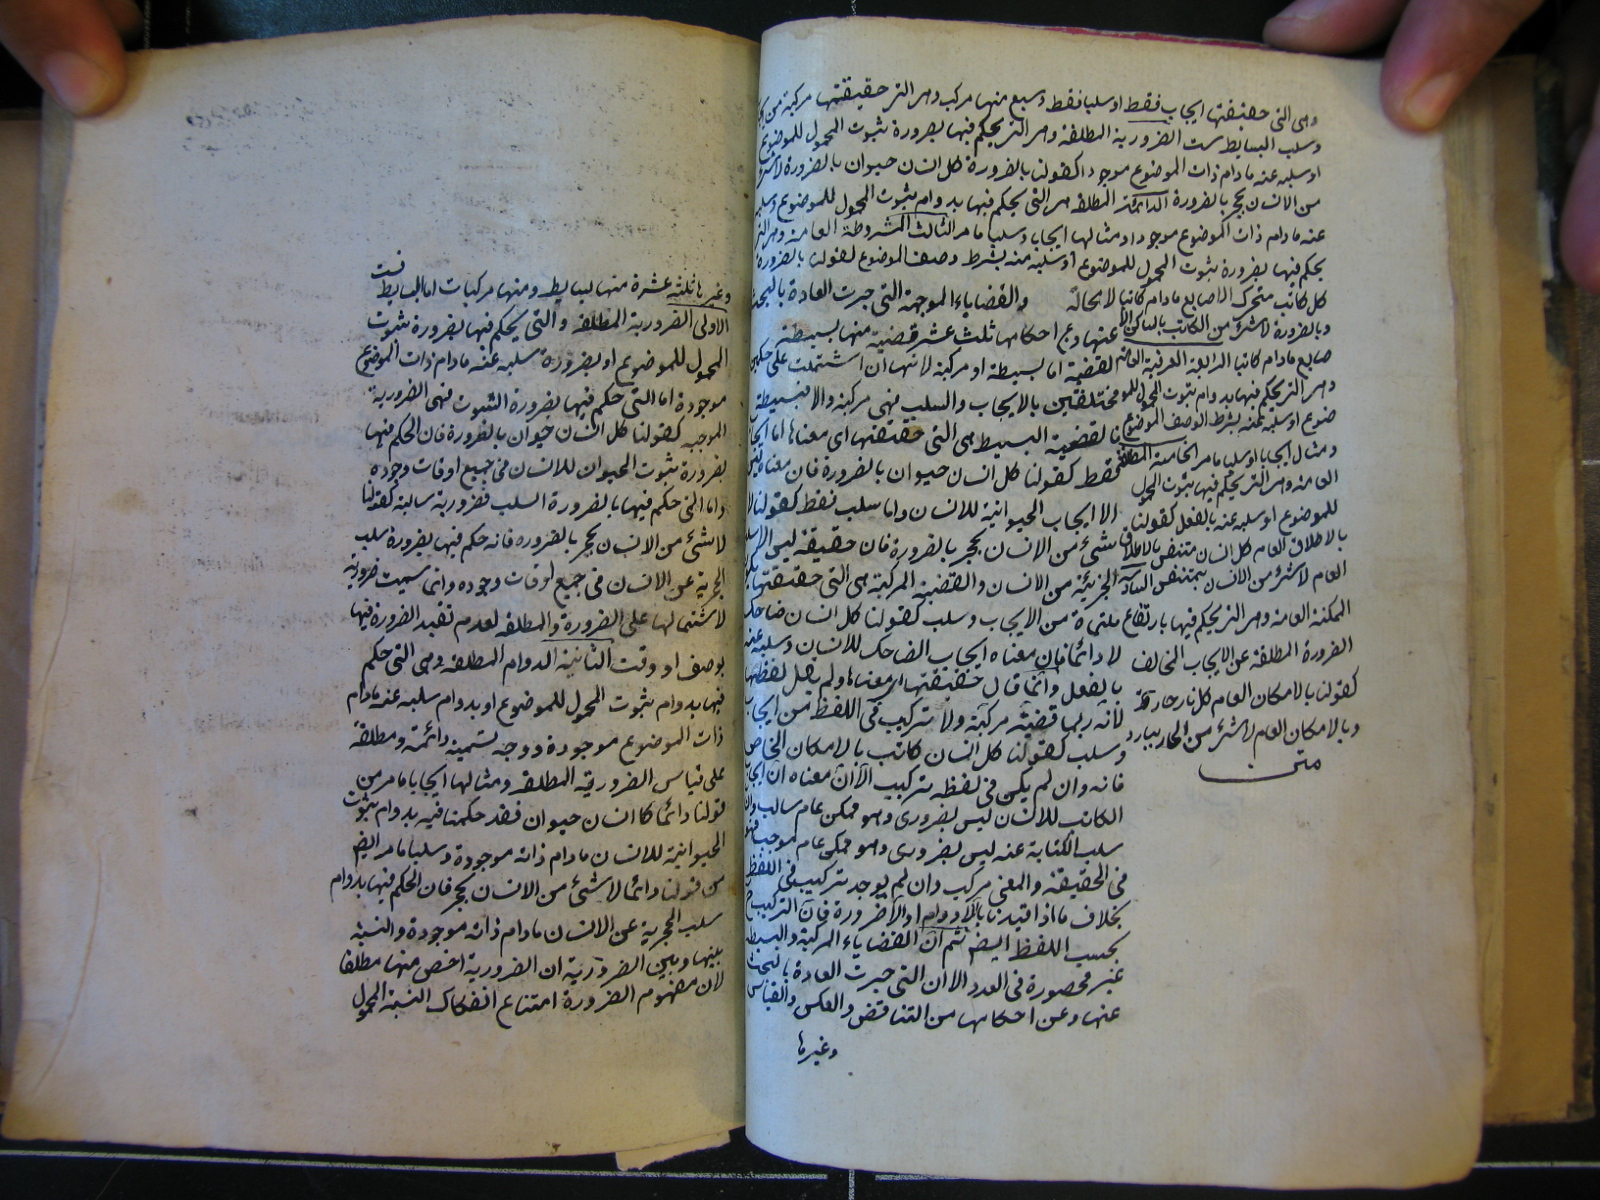 وهى التى حقيقتها ايجاب فقط او سلب فقط وسبع منها مركب وهى التى حقيقتها مركبة من ايجاب
وسلب البسايط ست الضرورية المطلقة وهى التى يحكم فيها بضرورة ثبوت المحمول للموضوع
او سلبه عنه مادام ذات الموضوع موجودا كقولنا بالضرورة كل انسان حيوان بالضرورة لا شئ
من الانسان بحجر بالضرورة الدائمة المطلقة هى التى يحكم فيها بدوام ثبوت المحمول للموضوع وسلبه
عنه مادام ذات الموضوع موجودا ومثالها ايجابا وسلبا ما مر الثالث المشروطة العامة وهى التى
يحكم فيها بضرورة ثبوت المحمول للموضوع او سلبه عنه بشرط وصف الموضوع كقولنا بالضرورة
كل كاتب متحرك الاصابع مادام كاتبا لا محالة
وبالضرورة لا شئ من الكاتب بساكن الا
صابع مادام كاتبا الرابعة العرفية العامة
وهى التى يحكم فيها بدوام ثبوت المحمول للمو
ضوع او سلبه عنه بشرط الوصف الموضوع
ومثال ايجابا او سلبا ما مر الخامسة المطلقة
العامة وهى التى يحكم فيها بثبوت المحمول
للموضوع او سلبه عنه بالفعل كقولنا
بالاطلاق العام كل انسان متنفس بالاطلاق
العام لا شئ من الانسان بمتنفس السادسة
الممكنة العامة وهى التى يحكم فيها بارتفاع
الضرورة المطلقة عن الايجاب المخالف
كقولنا بالامكان العام كل نار حارة
وبالامكان العام لا شئ من الحار ببارد
متن
والقضاياء الموجهة التى جرت العادة بالبحث
عنها وعن احكامها ثلث عشر قضية منها بسيطة
القضية اما بسيطة او مركبة لانها ان اشتملت على حكمين
مختلفين بالايجاب والسلب فهى مركبة والا فبسيطة
فالقضية البسيط هى التى حقيقتها اى معناها اما ايجاب
فقط كقولنا كل انسان حيوان بالضرورة فان معناه ليس
الا ايجاب الحيوانية للانسان واما سلب فقط كقولنا لا
شئ من الانسان بحجر بالضرورة فان حقيقته ليس الا سلب
الحجرية من الانسان والقضية المركبة هى التى حقيقتها
ملتئمة من الايجاب وسلب كقولنا كل انسان ضاحك
لا دائما فان معناه ايجاب الضاحك للانسان وسلبه عنه
بالفعل وانما قال حقيقتها اى معناها ولم يقل لفظها
لانه ربما قضية مركبة ولا تركيب فى اللفظ من ايجاب
وسلب كقولنا كل انسان كاتب بالامكان الخاص
فانه وان لم يكن فى لفظه تركيب الا ان معناه ان ايجاب
الكاتب للانسان ليس بضرورى وهو ممكن عام سالب وان
سلب الكتابة عنه ليس بضرورى وهو ممكن عام موجب فهو
فى الحقيقة والمعنى مركب وان لم يوجد تركيب فى اللفظ
بخلاف ما اذا قيدنا باللادوام او اللاضرورة فان التركيب ح
بحسب اللفظ ايضم ثم ان القضاياء المركبة والبسيطة
غير محصورة فى العدد الا ان التى جرت العادة بالبحث
عنها وعن احكامها من التناقض والعكس والقياس
وغيرها
وغيرها ثلثه عشرة منها بسايط ومنها مركبات اما البسايط فست
الاولى الضرورية المطلقة والتى يحكم فيها بضرورة ثبوت
المحمول للموضوع او بضرورة سلبه عنه مادام ذات الموضوع
موجودة اما التى حكم فيها بضرورة الثبوت فهى الضرورية
الموجبه كقولنا كل انسان حيوان بالضرورة فان الحكم فيها
بضرورة ثبوت الحيوان للانسان فى جميع اوقات وجوده
واما التى حكم فيها بالضرورة السلب فضرورية سالبة كقولنا
لا شئ من الانسان بحجر بالضرورة فانه حكم فيها بضرورة سلب
الحجرية عن الانسان فى جميع اوقات وجوده وانما سميت ضرورية
لاشتمالها على الضرورة والمطلقة لعدم تقيد الضرورة فيها
بوصف او وقت الثانية الدوام المطلقه وهى التى حكم
فيها بدوام ثبوت المحمول للموضوع او بدوام سلبه عنه مادام
ذات الموضوع موجودة ووجه تسميته دائمة ومطلقة
على قياس الضرورية المطلقة ومثالها ايجابا ما مر من
قولنا دائما كل انسان حيوان فقد حكمنا فيه بدوام ثبوت
الحيوانية للانسان مادام ذاته موجودة وسلبا ما مر ايضم
من قولنا دائما لا شئ من الانسان بحجر فان الحكم فيها بدوام
سلب الحجرية عن الانسان مادام ذاته موجودة والنسبة
بينها وبين الضرورية ان الضرورية اخص منها مطلقا
لان مفهوم الضرورة امتناع انفكاك النسبة المحمول